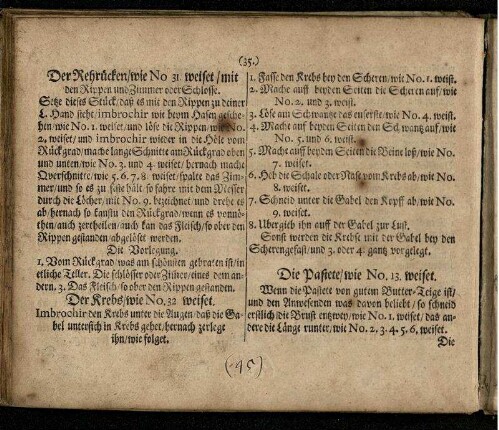 (35.)
Der Rehrücken/wie No 31 weiset/mit
den Rippen und Zimmer oder Schlosse.
Setz dieses Stück/daß es mit den Rippen zu deiner
L. Hand sieht/imbrochir wie beym Hasen gesche-
hen/wie No 1. weiset/und löse die Rippen/wie No.
2. weiset/und imbrochir wieder in die Höle vom
Rückgrad/mache lange Schnitte am Rückgrad oben
und unten/wie No. 3. und 4. weiset/hernach mache
Querschnitte/wie 5. 6. 7. 8. weiset/spalte das Zim-
mer/und so es zu feste hält so fahre mit dem Messer
durch die Löcher/mit No. 9. bezeichnet/und drehe es
ab/hernach so kanstu den Rückgrad/wenn es vonnö-
then/auch zertheilen/auch kan das Fleisch/so ober den
Rippen gestanden abgelöset werden.
Die Vorlegung.
1. Vom Rückgrad/was am schönsten gebraten ist/in
etliche Teller. Die Schlösser oder Züner/eines dem an-
dern. 3. Das Fleisch/so ober den Rippen gestanden.
Der Krebs/wie No. 32 weiset.
Imbrochir den Krebs unter die Augen/daß die Ga-
bel untersich in Krebs gehet/hernach zerlege
ihn/wie folget.
1. Fasse den Krebs bey den Scheren/wie No. 1. weist.
2. Mache auff beyden Seiten die Scheren auf/wie
No. 2. und 3. weist.
3. Löse am Schwantze das enserste/wie No. 4. weist.
4. Mache auf beyden Seiten den Schwantz auf/wie
No. 5. und 6. weist.
5. Mache auff beyden Seiten die Beine loß/wie No.
7. weiset.
6. Heb die Schale oder Nase vom Krebs ab/wie No.
8. weiset.
7. Schneid unter die Gabel den Kopff ab/wie No.
9. weiset.
8. Ubergieb ihn auff der Gabel zur Lust.
Sonst werden die Krebse mit der Gabel bey den
Scheren gefast/und 3. oder 4. gantz vorgelegt.
Die Pastete/wie No. 13. weiset.
Wenn die Pastete von gutem Butter-Teige ist/
und den Anwesenden was davon beliebt/so schneid
erstlich die Brust entzwey/wie No. 1. weiset/das an-
dere die Länge runter/wie No. 2. 3. 4. 5. 6. weiset.
Die
(45)